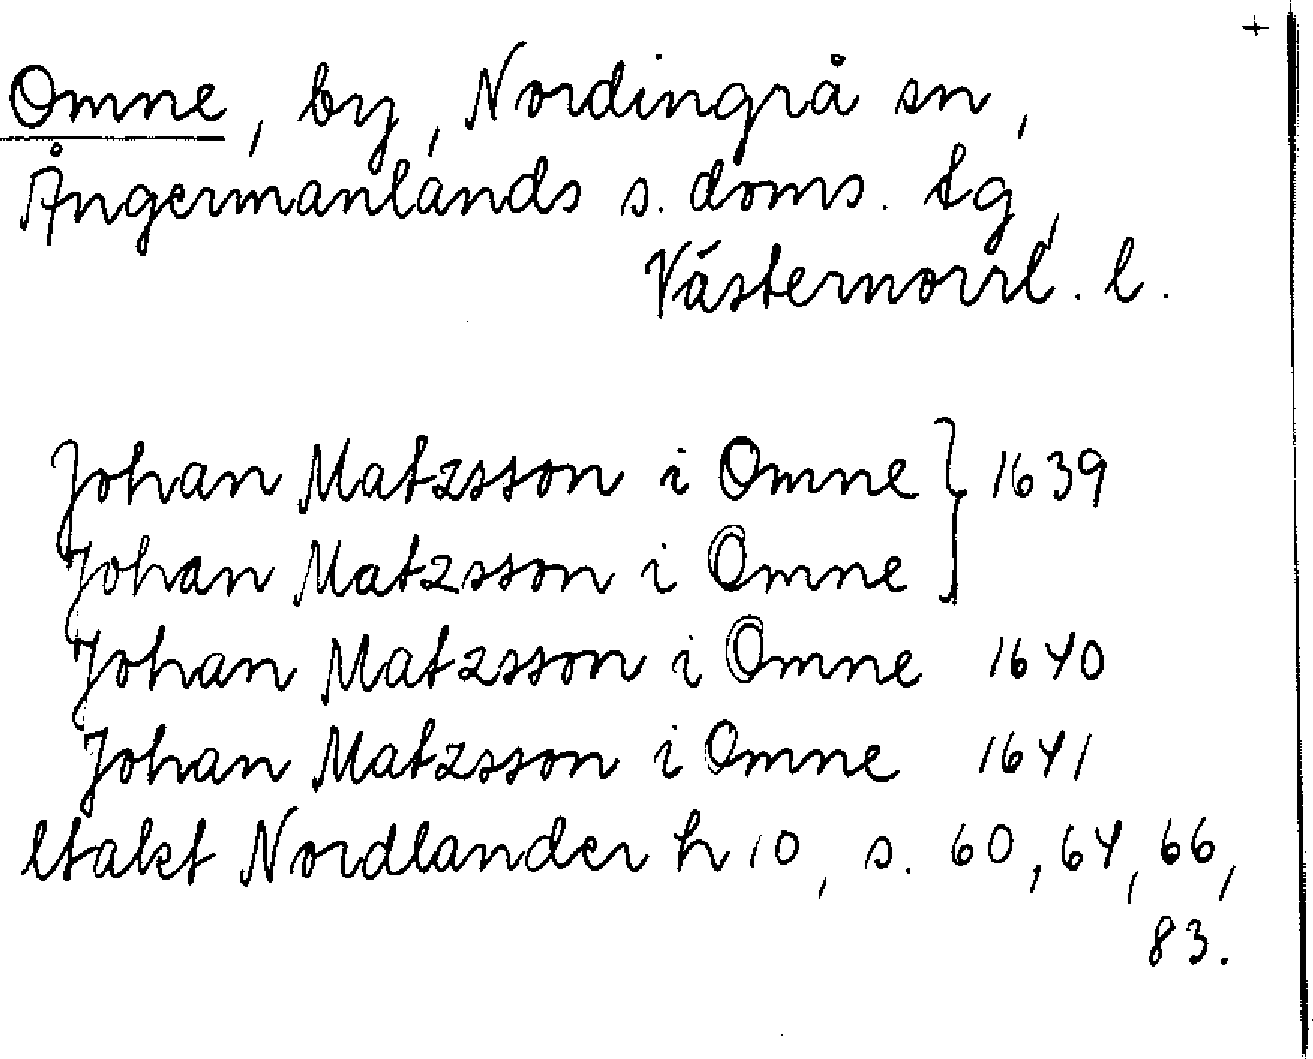 +
Omne, by, Nordingrå sn,
Ångermanlands s. doms. tg,
Västernorrl. l.
Johan Matzsson i Omne } 1639
Johan Matzsson i Omne
Johan Matzsson i Omne 1640
Johan Matzsson i Omne 1641
Nordlander h 10, s. 60, 64, 66,
83.